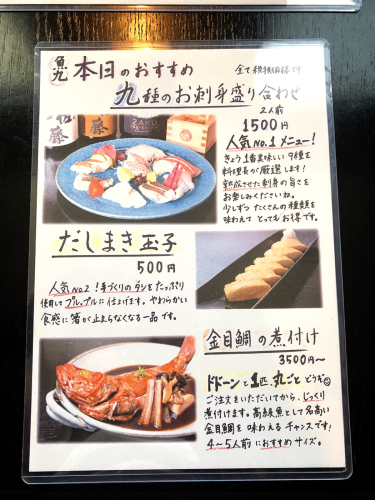 魚九
本日のおすすめ
全て税抜価格です
九種のお刺身盛り合わせ
2人前
1500円
人気No.1メニュー!
きょう1番美味しい9種を
料理長が厳選します!
熟成させた刺身の旨さを
お楽しみくださいね。
少しずつたくさんの種類を
味わえてとってもお得です。
だしまき玉子
500円
人気No2!手づくりのダシをたっぷり
使用してプルップルに仕上げます。やわらかい
食感に箸が止まらなくなる一品です。
金目鯛の煮付け
3500円〜
ドドーンと1匹、丸ごとどうぞ
ご注文をいただいてから、じっくり
煮付けます。高級魚として名高い
金目鯛を味わえるチャンスです!
4〜5人前におすすめサイズ。